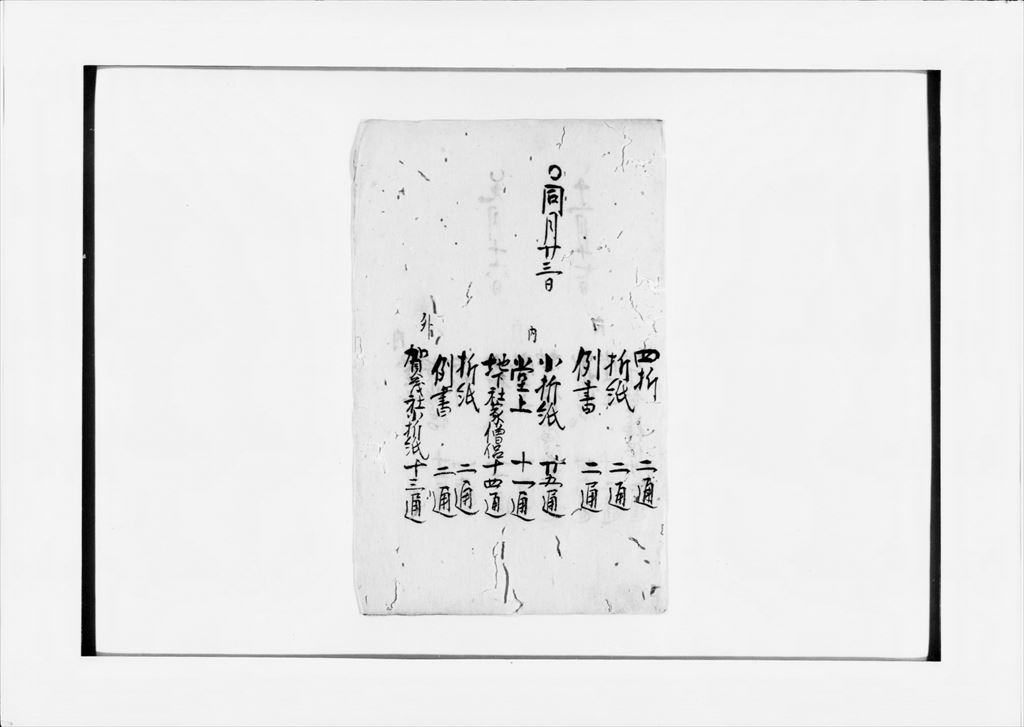 四折 二通
折紙 二通
例書 二通
〇同月廿三日
小折紙 廿五通
内
堂上 十一通
地下社家僧侶十四通
折紙 二通
例書 二通
外
賀茂社小折紙十三通